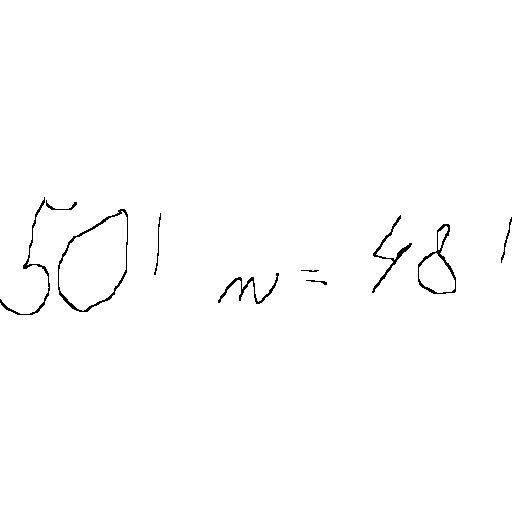 50' n = 48'